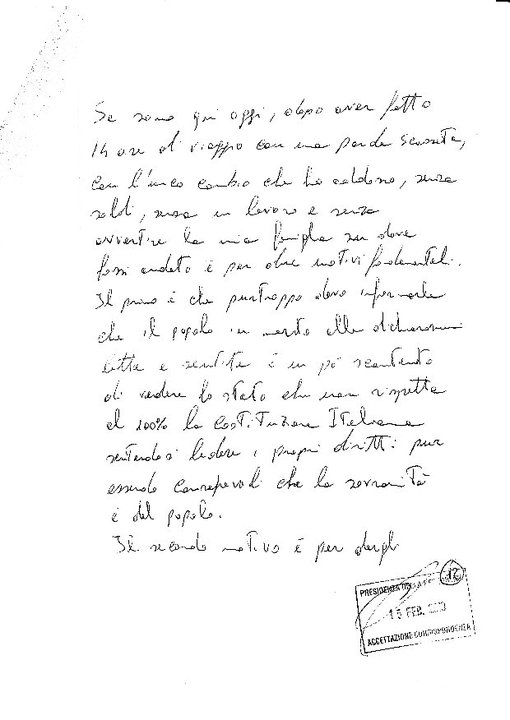 Se sono qui oggi, dopo aver fatto
14 ore di viaggio con una panda scassata,
con l'unico cambio che ho addosso, senza
soldi, senza un lavoro e senza
avvertire la mia famiglia su dove
fossi andato è per due motivi fondamentali.
Il primo è che purtroppo devo informarla
che il popolo in merito alle dichiarazioni
lette e sentite è un pò scontento
di vedere lo stato che non rispetta
al 100% la Costituzione Italiana
sentendosi ledere i propri diritti pur
essendo consapevoli che la sovranità
è del popolo.
Il secondo motivo è per dargli
12
PRESIDENZA
15 FEB.
ACCETTAZIONE CORRISPONDENZA